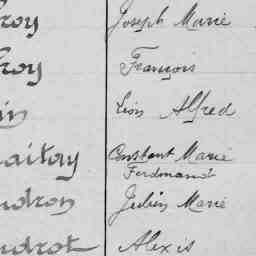 roy Joseph Marie
roy François
in Léon Alfred
aitay Constant Marie
Ferdinand
udron Julien Marie
udrot Alexis